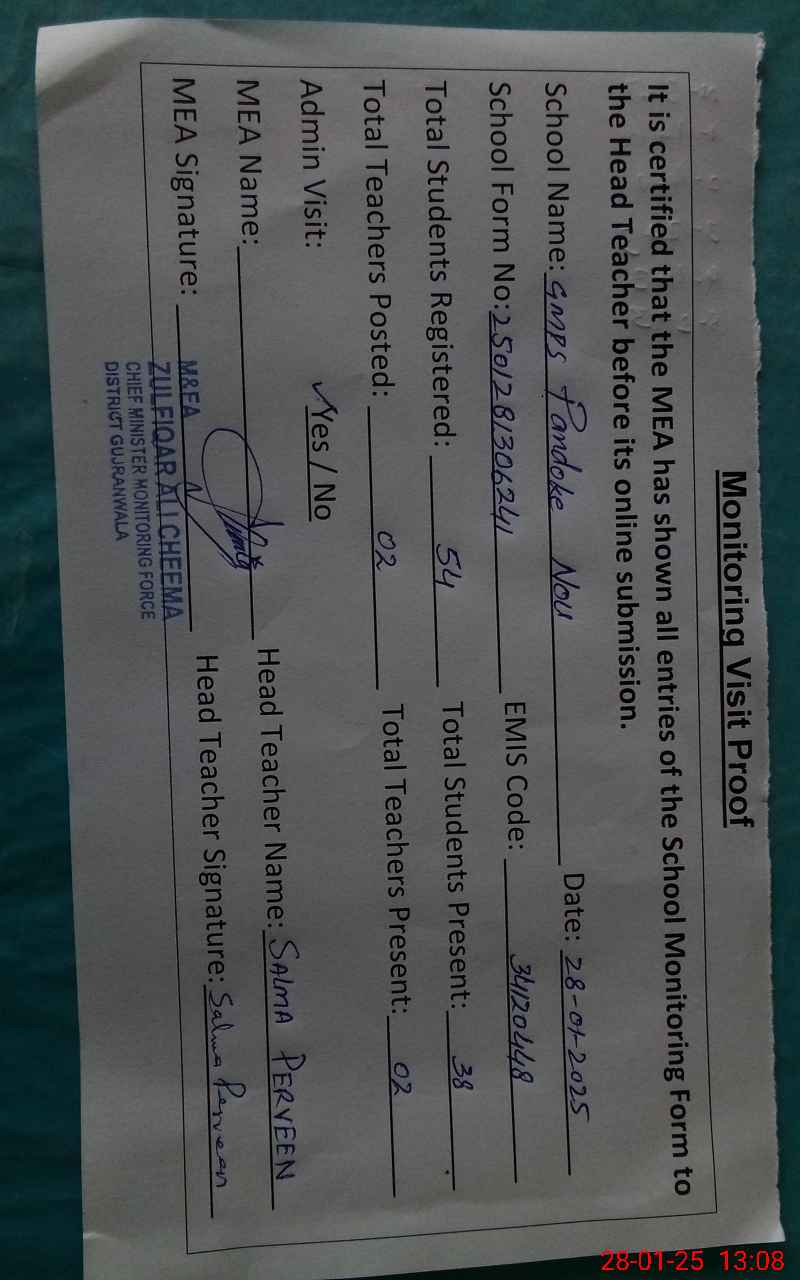 Monitoring Visit Proof
It is certified that the MEA has shown all entries of the School Monitoring Form to
the Head Teacher before its online submission.
School Name: GMPS Pandoke Nou Date: 28-01-2025
School Form No: 2501281306241 EMIS Code: 34120448
Total Students Registered: 54 Total Students Present: 38
Total Teachers Posted: 02 Total Teachers Present: 02
Admin Visit: ✓Yes / No
MEA Name: Head Teacher Name: SALMA PERVEEN
MEA Signature: Head Teacher Signature: Salma Perveen
M&EA
ZULFIQAR ALI CHEEMA
CHIEF MINISTER MONITORING FORCE
DISTRICT GUJRANWALA
28-01-25 13:08